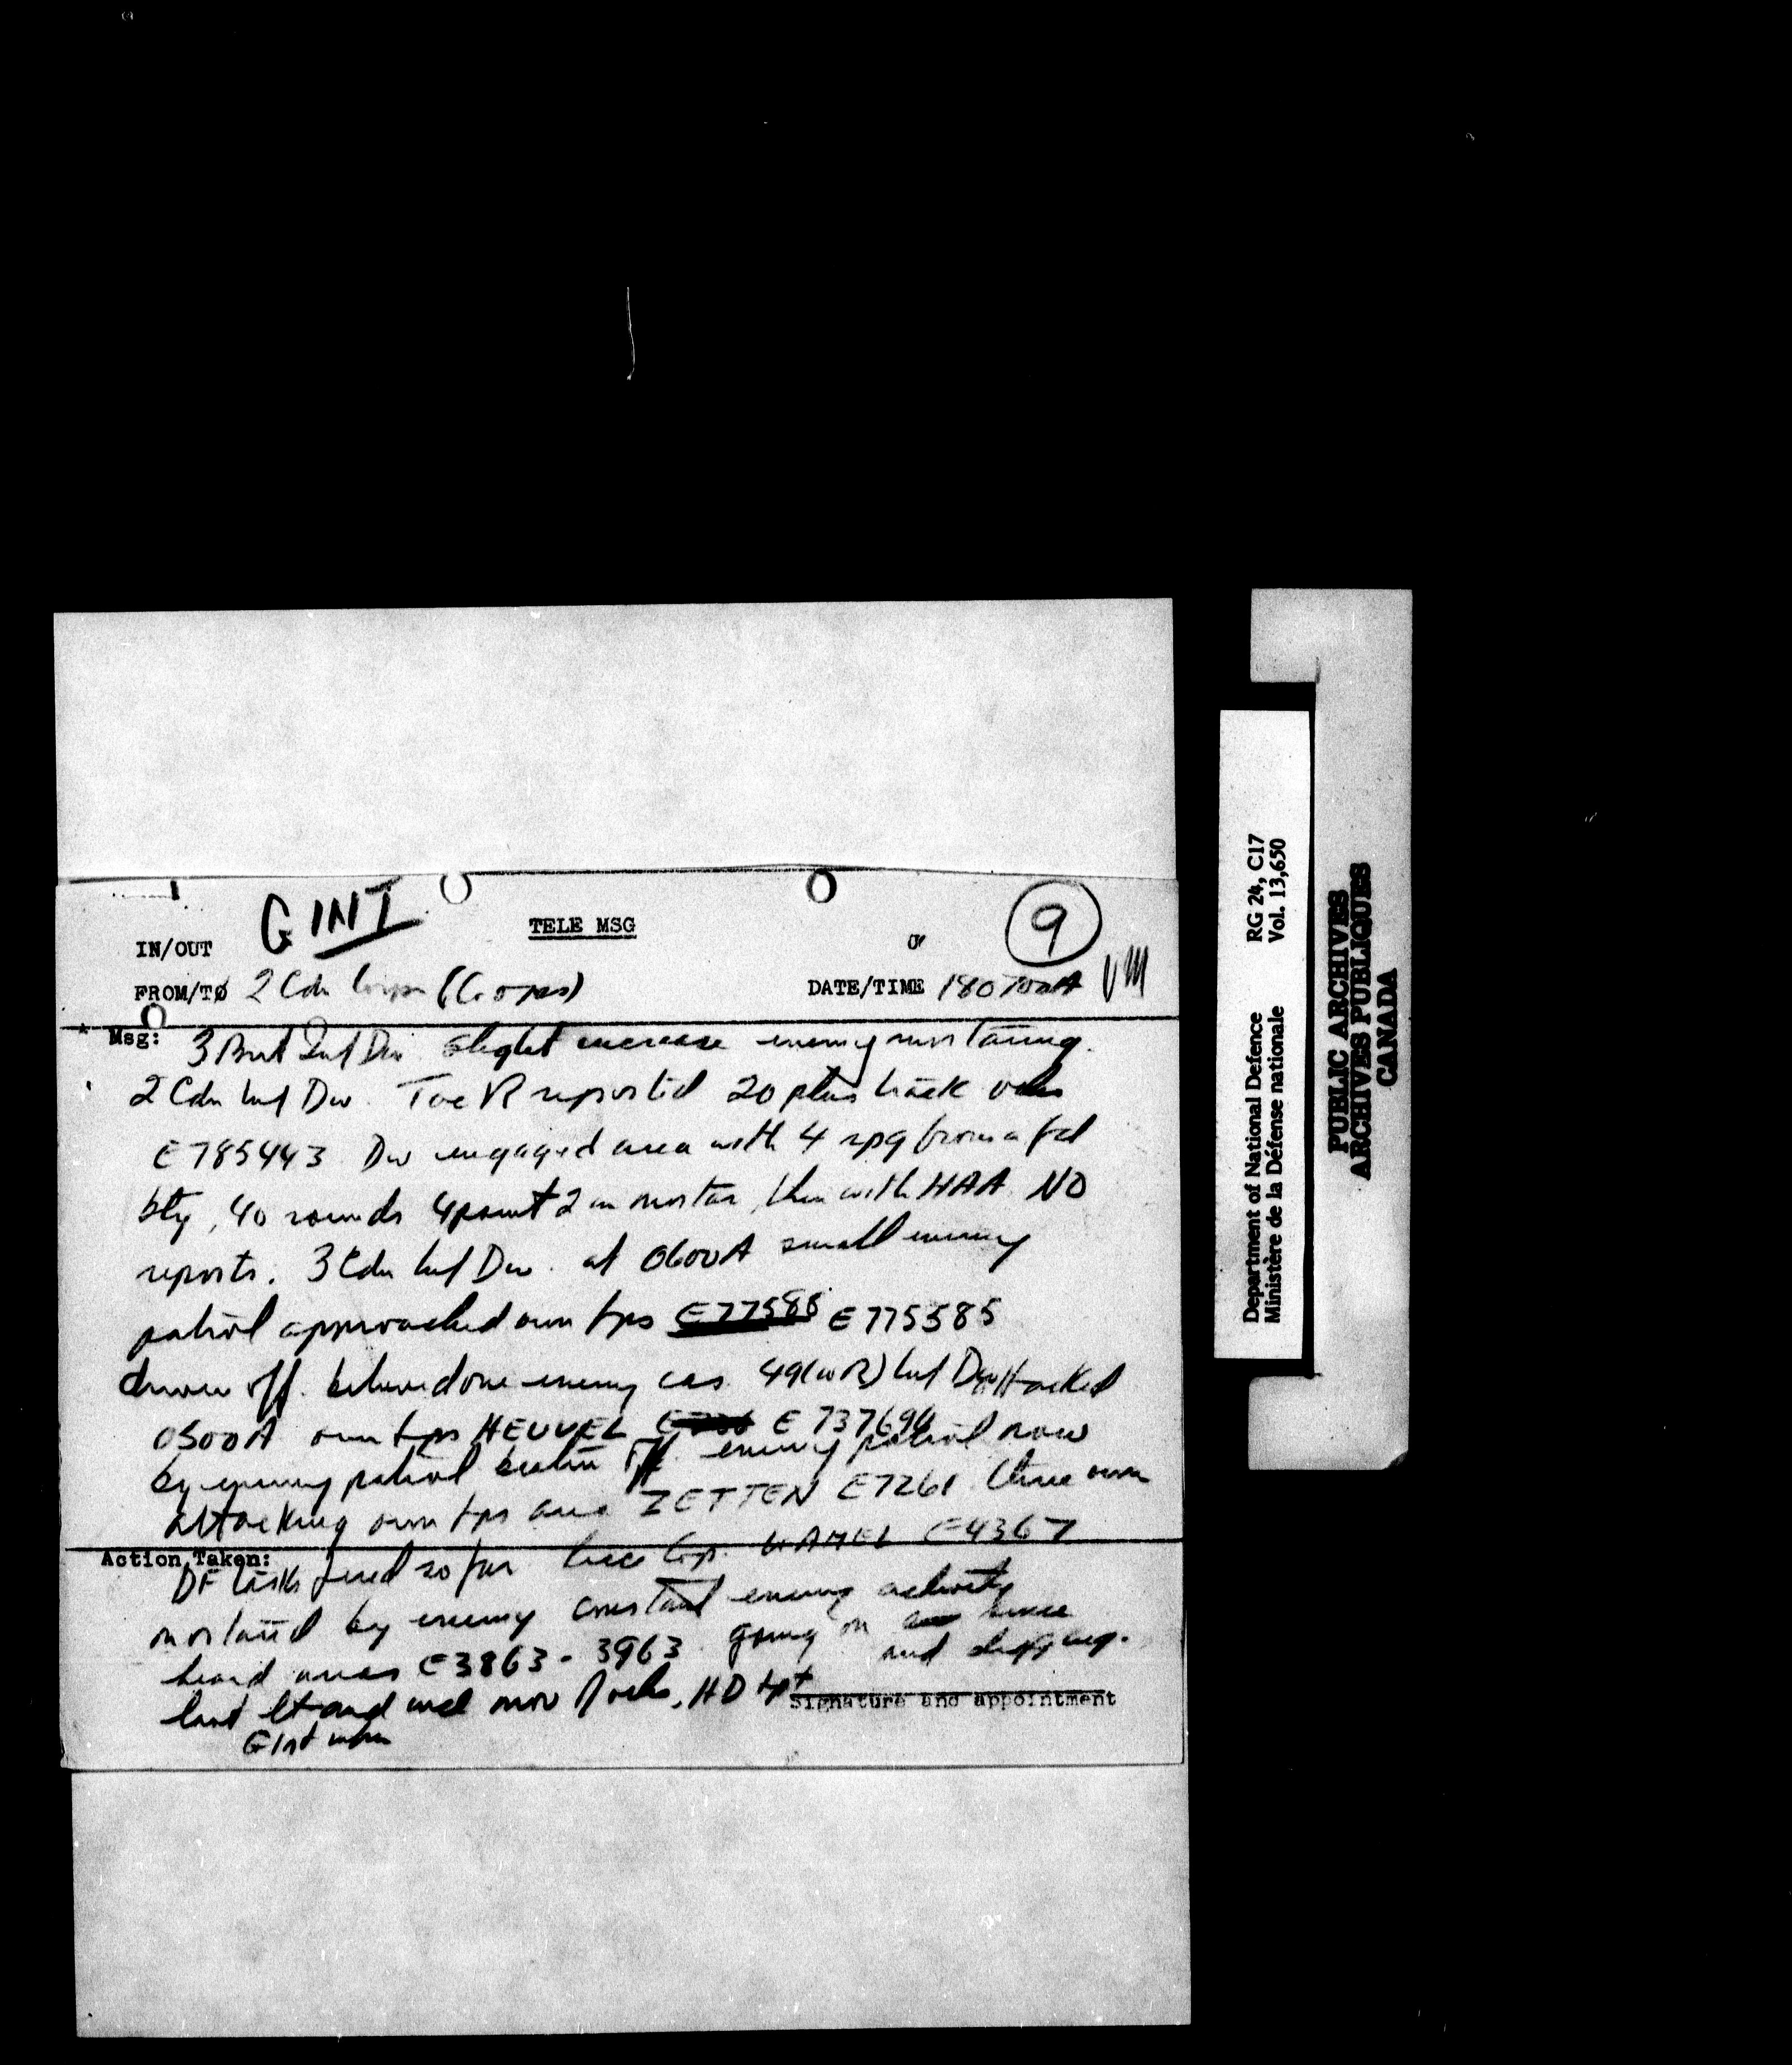 G INT
TELE MSG
9
IN/OUT
FROM/TO 2 Cdn Corps (G ops)
DATE/TIME 180700A
Msg: 3 Brit Inf Div slight increase enemy mortaring.
2 Cdn Inf Div. Toc R reported 20 plus track vehs
E785443 Div engaged area with 4 rpg from a fd
bty, 40 rounds 4 point 2 in mortar, then with HAA. NO
reports. 3 Cdn Inf Div. at 0600A small enemy
patrol approached own tps E77585 E775585
driven off. believed one enemy cas. 49(WR) Inf Div attacked
0500A own tps HEUVEL E 737690
by enemy patrol beaten off. enemy patrol now
attacking own tps area ZETTEN E7261. three own
Action Taken:
DF tasks fired so far. HAMEL E4367
mortared by enemy constant enemy activity
heard areas E3863 - 3963 going on since
last lt and incl mov of vehs, HD tpt and digging.
Signature and appointment
G Int infm
Department of National Defence RG 24, C17
Ministère de la Défense nationale Vol. 13,650
PUBLIC ARCHIVES
ARCHIVES PUBLIQUES
CANADA